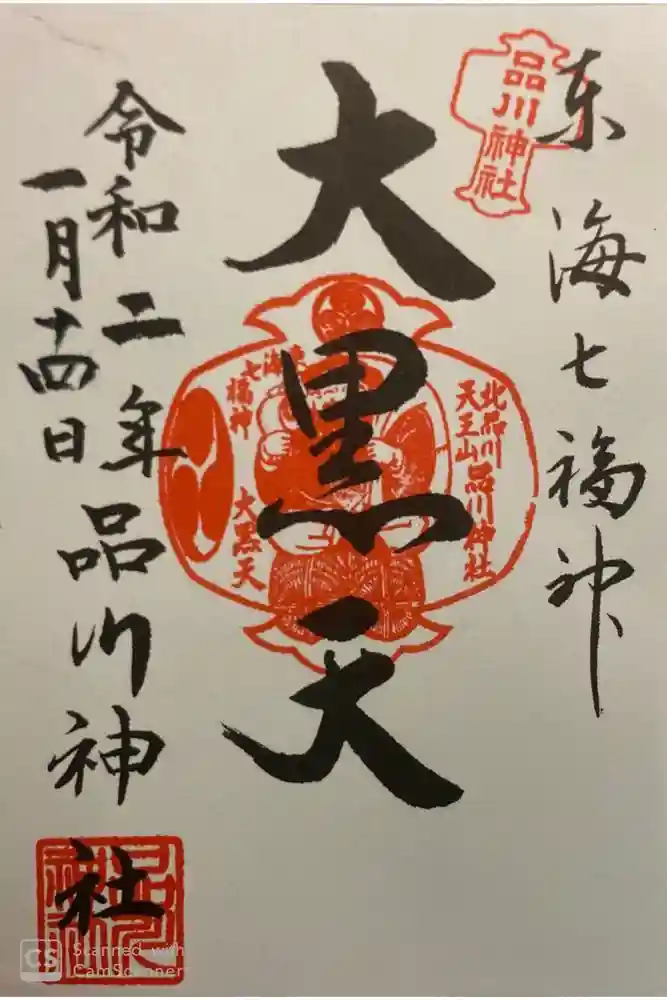 東海七福神
品川神社
大黒天
北品川
天王山 品川神社
東海
七福神
大黒天
令和二年 品川神社
一月十四日
品川神社
CS Scanned with
CamScanner